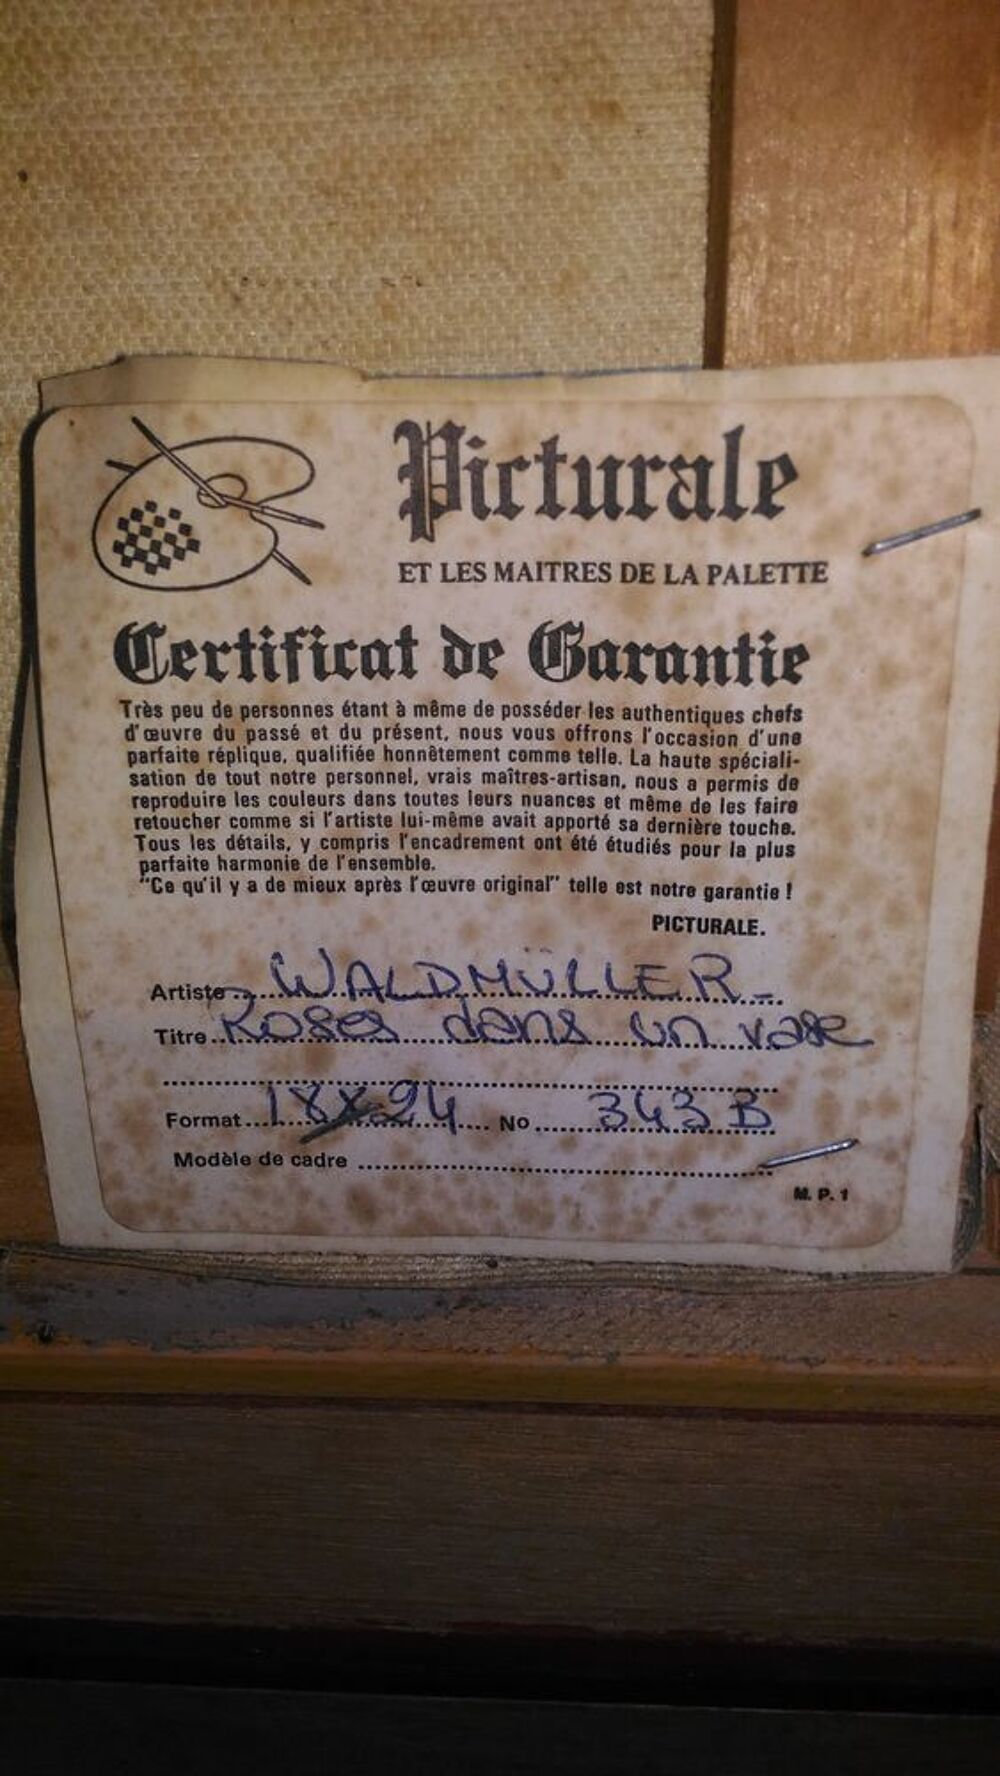 Picturale
ET LES MAITRES DE LA PALETTE
Certificat de Garantie
Très peu de personnes étant à même de posséder les authentiques chefs
d'œuvre du passé et du présent, nous vous offrons l'occasion d'une
parfaite réplique, qualifiée honnêtement comme telle. La haute spéciali-
sation de tout notre personnel, vrais maîtres-artisan, nous a permis de
reproduire les couleurs dans toutes leurs nuances et même de les faire
retoucher comme si l'artiste lui-même avait apporté sa dernière touche.
Tous les détails, y compris l'encadrement ont été étudiés pour la plus
parfaite harmonie de l'ensemble.
"Ce qu'il y a de mieux après l'œuvre original" telle est notre garantie !
PICTURALE.
Artiste WALDMÜLLER -
Titre Roses dans un vase
Format 18x24 No 343 B
Modèle de cadre
M. P. 1